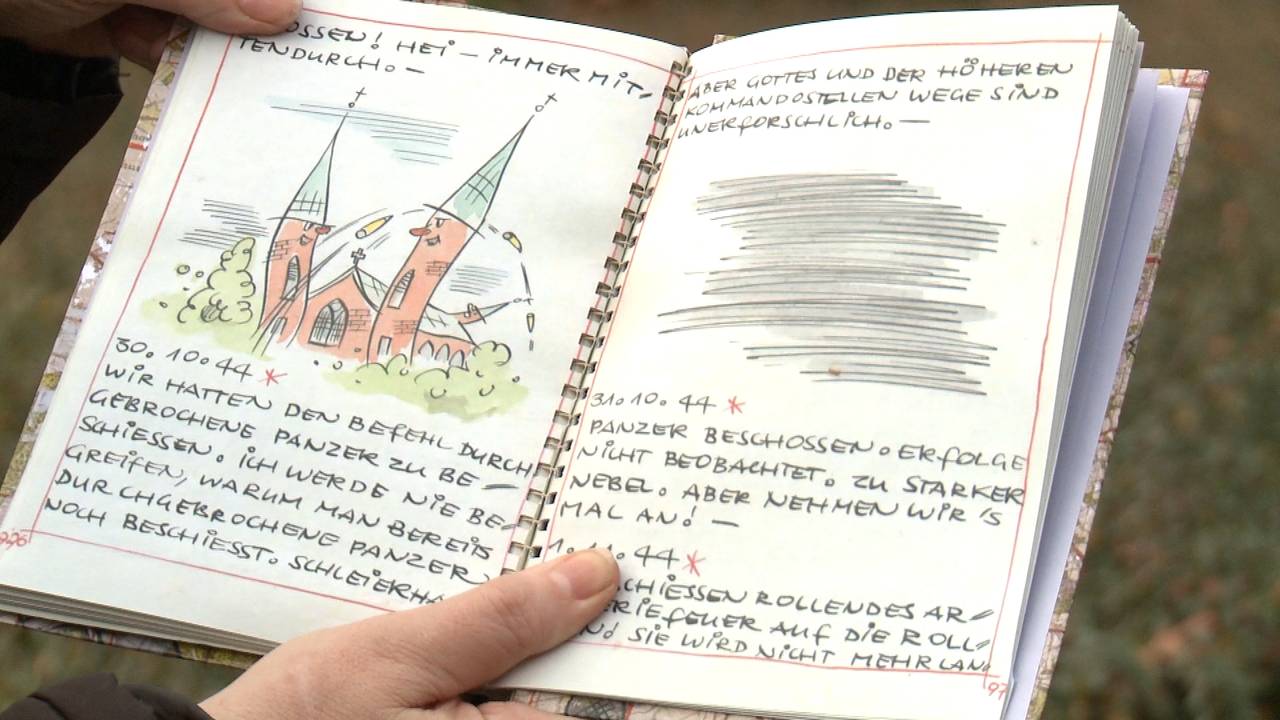 OSSEN! HEI – IMMER MIT-
TENDURCH. –
30.10.44 *
WIR HATTEN DEN BEFEHL DURCH
GEBROCHENE PANZER ZU BE –
SCHIESSEN. ICH WERDE NIE BE-
GREIFEN, WARUM MAN BEREITS
DURCHGEBROCHENE PANZER
NOCH BESCHIESST. SCHLEIERHA
ABER GOTTES UND DER HÖHEREN
KOMMANDOSTELLEN WEGE SIND
UNERFORSCHLICH. –
31.10.44 *
PANZER BESCHOSSEN. ERFOLGE
NICHT BEOBACHTET. ZU STARKER
NEBEL. ABER NEHMEN WIR'S
MAL AN! –
1.11.44 *
CHIESSEN ROLLENDES AR-
ERIEFEUER AUF DIE ROLL-
N! SIE WIRD NICHT MEHR LAN
97